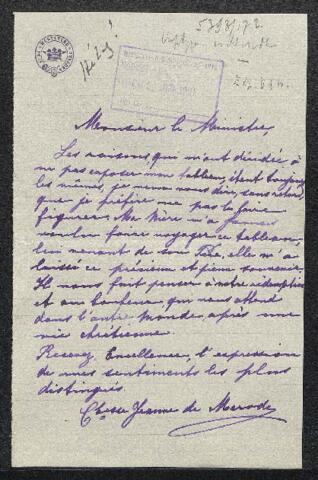 5798/172
Monsieur le Ministre,
Les raisons, qui m'ont décidée à
ne pas exposer mon tableau, étant toujours
les mêmes, je viens vous dire, sans retard,
que je préfère ne pas le faire
figurer. Ma Mère n'a jamais
voulu faire voyager ce tableau,
lui venant de son Père, elle m'a
laissé ce précieux et pieux souvenir.
Il nous fait penser à notre rédemption
et au bonheur, qui nous attend
dans l'autre monde, après une
vie chrétienne.
Recevez, Excellence, l'expression
de mes sentiments les plus
distingués
Ctesse Jeanne de Merode